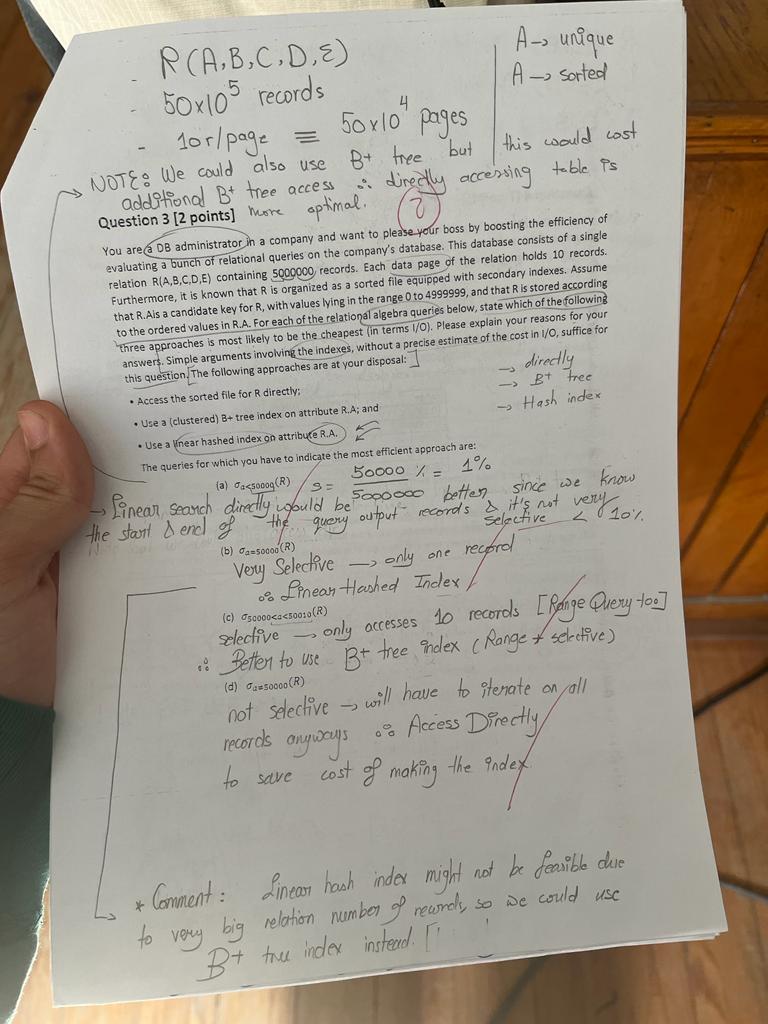 R(A,B,C,D,E)
- 50x10⁵ records
- 10r/page ≡ 50x10⁴ pages
A → unique
A → sorted
→ NOTE: We could also use B+ tree but this would cost
additional B+ tree access ∴ directly accessing table is
more optimal.
2
Question 3 [2 points]
You are a DB administrator in a company and want to please your boss by boosting the efficiency of
evaluating a bunch of relational queries on the company's database. This database consists of a single
relation R(A,B,C,D,E) containing 5000000 records. Each data page of the relation holds 10 records.
Furthermore, it is known that R is organized as a sorted file equipped with secondary indexes. Assume
that R.Ais a candidate key for R, with values lying in the range 0 to 4999999, and that R is stored according
to the ordered values in R.A. For each of the relational algebra queries below, state which of the following
three approaches is most likely to be the cheapest (in terms I/O). Please explain your reasons for your
answers. Simple arguments involving the indexes, without a precise estimate of the cost in I/O, suffice for
this question. [The following approaches are at your disposal:]
• Access the sorted file for R directly;
• Use a (clustered) B+ tree index on attribute R.A; and
• Use a linear hashed index on attribute R.A.
→ directly
→ B+ tree
→ Hash index
The queries for which you have to indicate the most efficient approach are:
(a) σa<50000(R) S = 50000 / 5000000 % = 1%
→ Linear search directly would be better since we know
the start & end of the query output records & it's not very
selective < 10%
(b) σa=50000(R)
Very Selective → only one record
∴ Linear Hashed Index
(c) σ50000<a<50010(R)
selective → only accesses 10 records [Range Query too]
∴ Better to use B+ tree index (Range + selective)
(d) σa≠50000(R)
not selective → will have to iterate on all
records anyways ∴ Access Directly
to save cost of making the index
* Comment: Linear hash index might not be feasible due
to very big relation number of records, so we could use
B+ tree index instead.